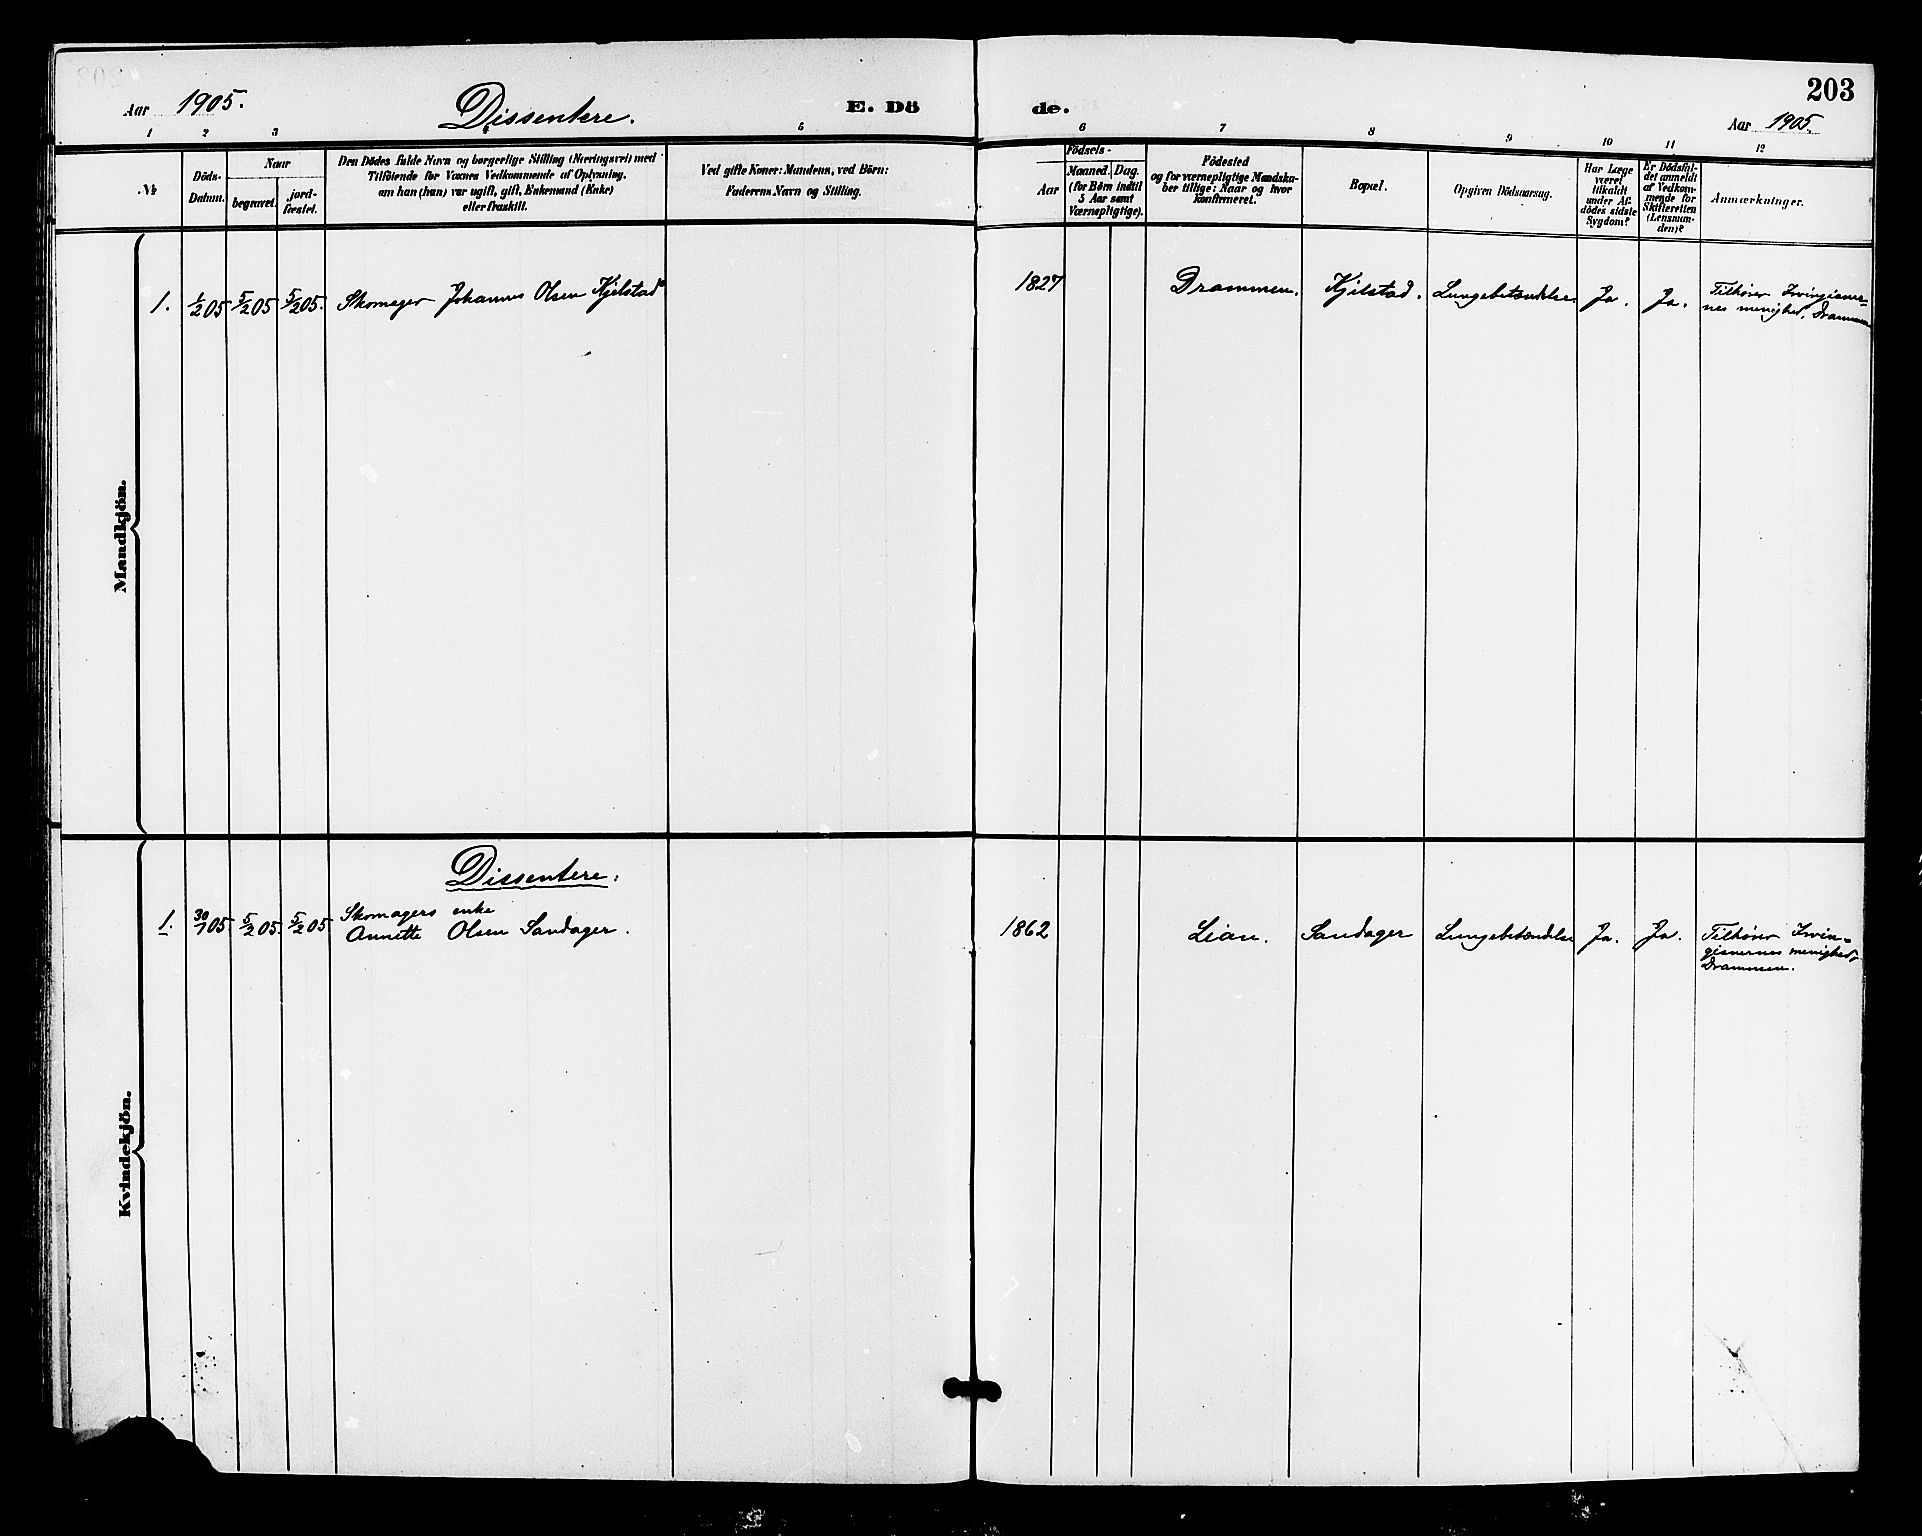 203
Aar 1905.
Dissentere.
E. Dö
de.
Aar 1905.
1 2 3 4 5 6 7 8 9 10 11 12
No
Döds-
Datum.
Naar
begravet.
jord-
fæstet.
Den Dödes fulde Navn og borgerlige Stilling (Næringsvei) med
Tilföiende for Voxnes Vedkommende af Oplysning,
om han (hun) var ugift, gift, Enkemand (Enke)
eller fraskilt.
Ved gifte Koner: Mandens, ved Börn:
Faderens Navn og Stilling.
Födsels-
Aar
Maaned. Dag.
(for Börn indtil
5 Aar samt
Værnepligtige).
Födested
og for værnepligtige Mandska-
ber tillige: Naar og hvor
konfirmeret.
Bopæl.
Opgiven Dödsaarsag.
Har Læge
været
tilkaldt
under Af-
dödes sidste
Sygdom?
Er Dödsfal-
det anmeldt
af Vedkom-
mende for
Skifteretten
(Lensman-
den)?
Anmærkninger.
Mandkjön.
1. 1/2 05 5/2 05 5/2 05. Skomager Johannes Olsen Kjelstad 1827 Drammen. Kjelstad. Lungebetændelse Ja. Ja. Tilhører Irvingianer-
nes menighed, Drammen
Kvindekjön.
Dissentere:
Skomagers enke
1. 30/1 05 5/2 05. 5/2 05 Annette Olsen Sandager. 1862 Lian. Sandager Lungebetændelse Ja. Ja. Tilhører Irvin-
gianernes menighed,
Drammen.